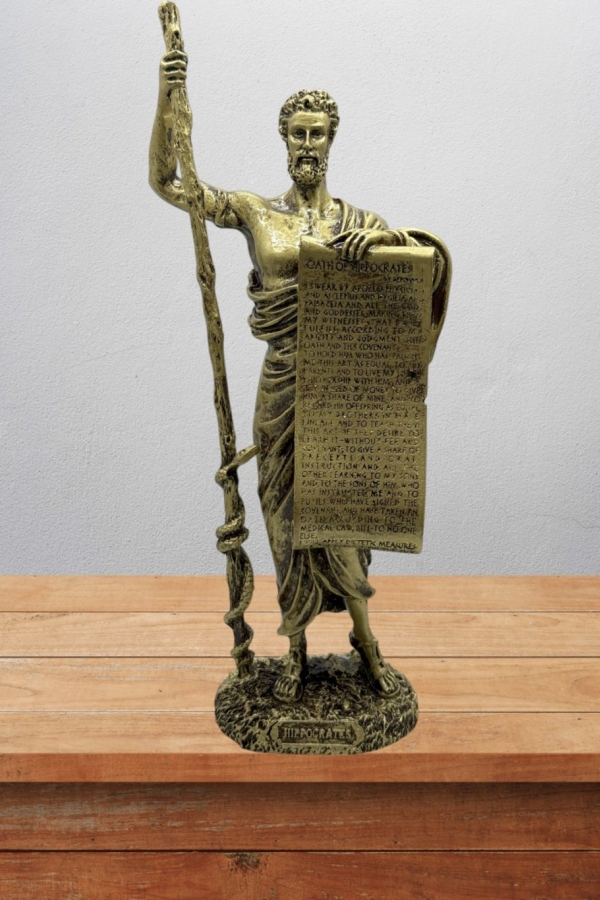 OATH OF HIPPOCRATES
I SWEAR BY APOLLO
AND ASCLEPIUS AND HYGIEIA
PANACEIA AND ALL THE
AND GODDESSES, MAKING
MY WITNESSES, THAT I
FULFIL ACCORDING TO
ABILITY AND JUDGMENT
OATH AND THIS COVENANT
TO HOLD HIM WHO HAS
THIS ART AS EQUAL TO
PARENTS AND TO LIVE MY
WITH HIM AND
NEED OF MONEY TO GIVE
HIM A SHARE OF MINE, AND
REGARD HIS OFFSPRING AS EQUAL
TO MY BROTHERS IN
LINEAGE AND TO TEACH
THIS ART IF THEY DESIRE TO
LEARN IT WITHOUT FEE AND
COVENANT; TO GIVE A SHARE OF
PRECEPTS AND ORAL
INSTRUCTION AND ALL THE
OTHER LEARNING TO MY SONS
AND TO THE SONS OF HIM WHO
HAS INSTRUCTED ME AND TO
PUPILS WHO HAVE SIGNED THE
COVENANT AND HAVE TAKEN AN
OATH ACCORDING TO THE
MEDICAL LAW, BUT TO NO ONE
ELSE.
I APPLY DIETETIC MEASURES
HIPPOCRATES